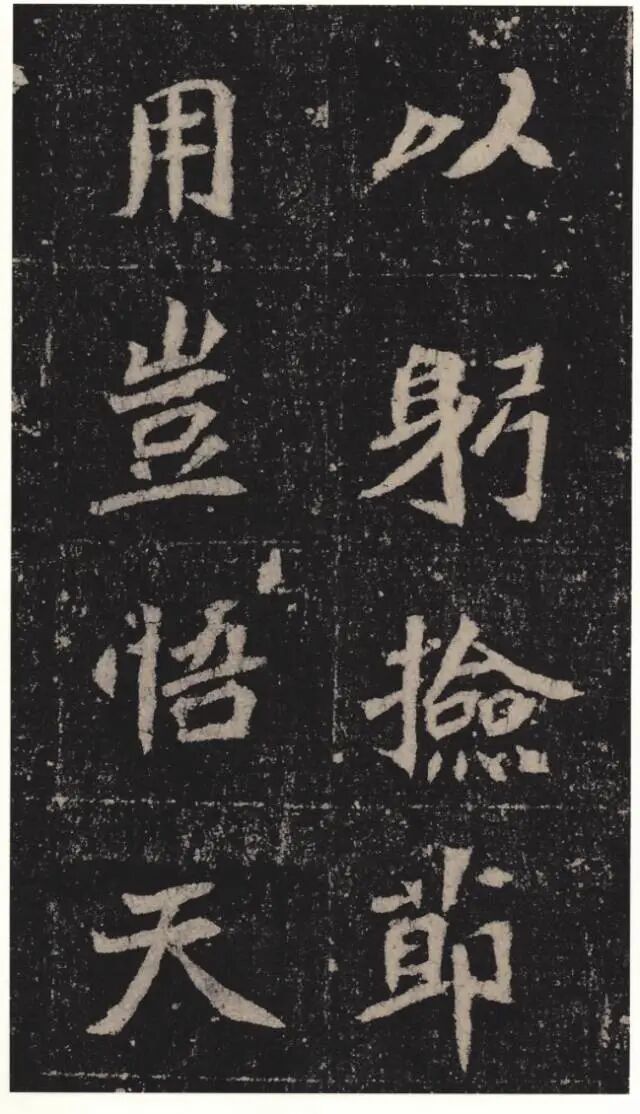 以躬撿節
用豈悟天